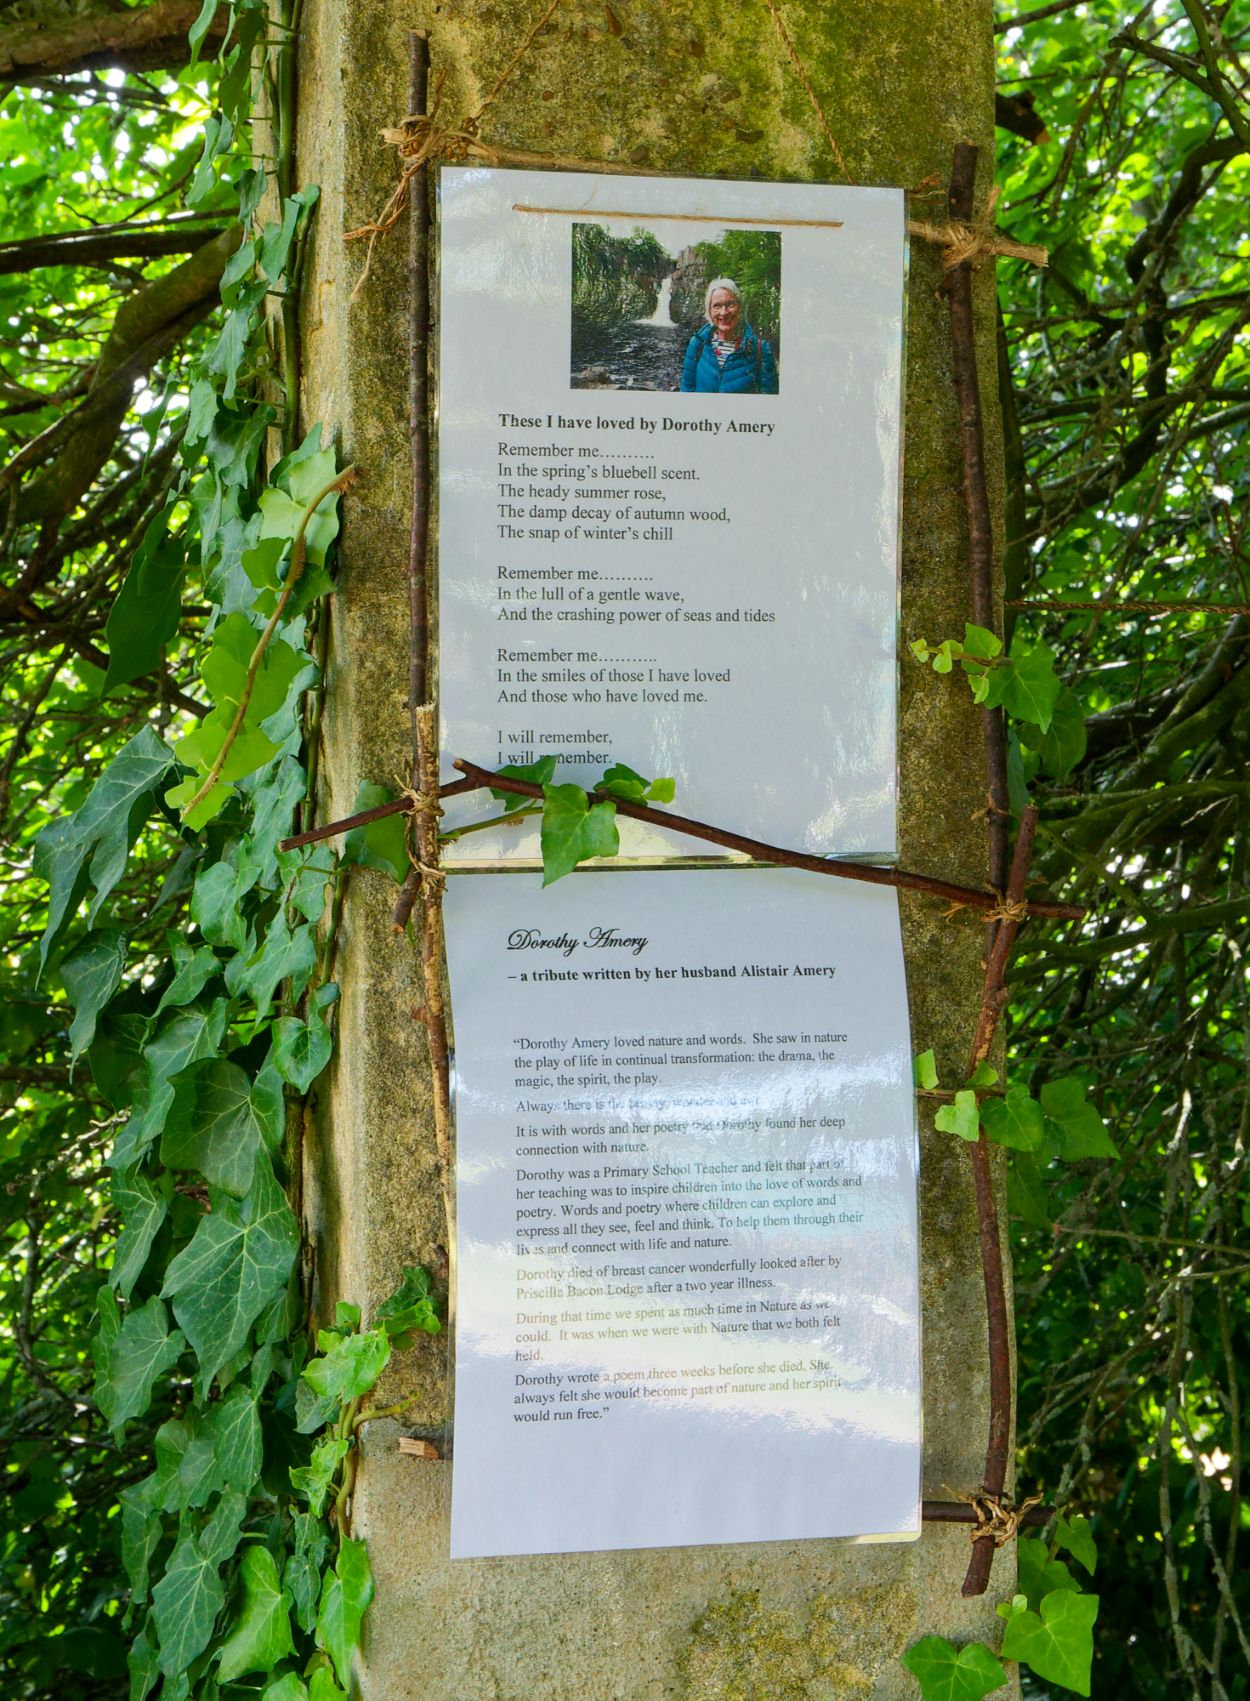 These I have loved by Dorothy Amery
Remember me..........
In the spring's bluebell scent.
The heady summer rose,
The damp decay of autumn wood,
The snap of winter's chill
Remember me..........
In the lull of a gentle wave,
And the crashing power of seas and tides
Remember me...........
In the smiles of those I have loved
And those who have loved me.
I will remember,
I will remember.
Dorothy Amery
– a tribute written by her husband Alistair Amery
“Dorothy Amery loved nature and words. She saw in nature
the play of life in continual transformation: the drama, the
magic, the spirit, the play.
Always there is the beauty, wonder and awe.
It is with words and her poetry that Dorothy found her deep
connection with nature.
Dorothy was a Primary School Teacher and felt that part of
her teaching was to inspire children into the love of words and
poetry. Words and poetry where children can explore and
express all they see, feel and think. To help them through their
lives and connect with life and nature.
Dorothy died of breast cancer wonderfully looked after by
Priscilla Bacon Lodge after a two year illness.
During that time we spent as much time in Nature as we
could. It was when we were with Nature that we both felt
held.
Dorothy wrote a poem three weeks before she died. She
always felt she would become part of nature and her spirit
would run free.”